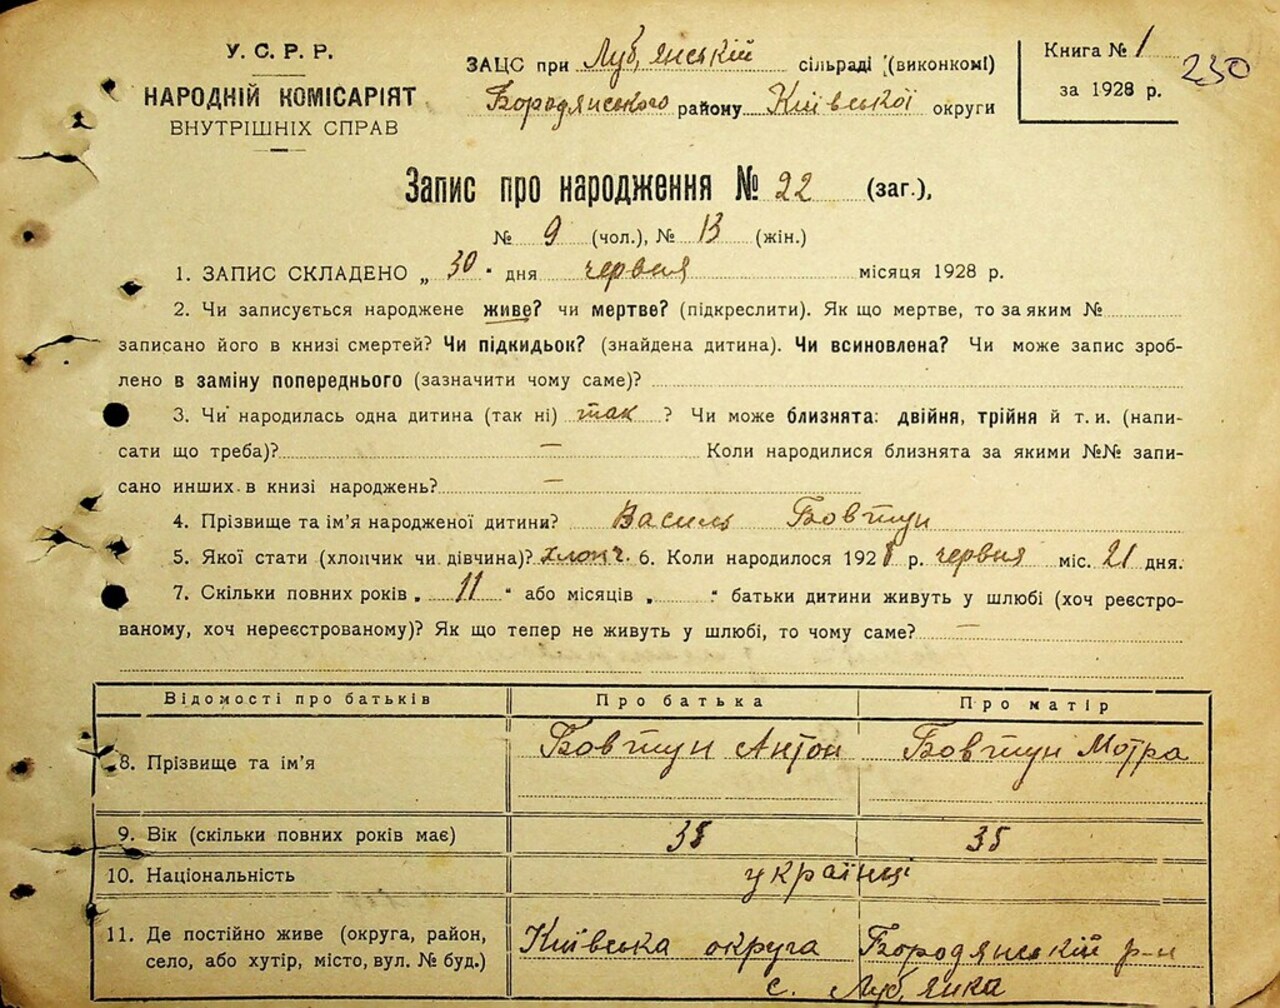 У. С. Р. Р.
НАРОДНІЙ КОМІСАРІЯТ
ВНУТРІШНІХ СПРАВ
ЗАЦС при Луб'янській сільраді (виконкомі)
Бородянського району Київської округи
Книга № 1
за 1928 р.
230
Запис про народження № 22 (заг.),
№ 9 (чол.), № 13 (жін.)
1. ЗАПИС СКЛАДЕНО „ 30 " дня червня місяця 1928 р.
2. Чи записується народжене живе? чи мертве? (підкреслити). Як що мертве, то за яким №
записано його в книзі смертей? Чи підкидьок? (знайдена дитина). Чи всиновлена? Чи може запис зроб-
лено в заміну попереднього (зазначити чому саме)?
3. Чи народилась одна дитина (так ні) так ? Чи може близнята: двійня, трійня й т. и. (напи-
сати що треба)? — Коли народилися близнята за якими №№ запи-
сано инших в книзі народжень? —
4. Прізвище та ім'я народженої дитини? Василь Бовтун
5. Якої стати (хлопчик чи дівчина)? хлопч. 6. Коли народилося 1928 р. червня міс. 21 дня.
7. Скільки повних років „ 11 " або місяців „ " батьки дитини живуть у шлюбі (хоч реєстро-
ваному, хоч нереєстрованому)? Як що тепер не живуть у шлюбі, то чому саме? —
Відомості про батьків Про батька Про матір
8. Прізвище та ім'я Бовтун Антон Бовтун Мотра
9. Вік (скільки повних років має) 38 35
10. Національність українці
11. Де постійно живе (округа, район, Київська округа Бородянській р-н
село, або хутір, місто, вул. № буд.) с. Луб'янка